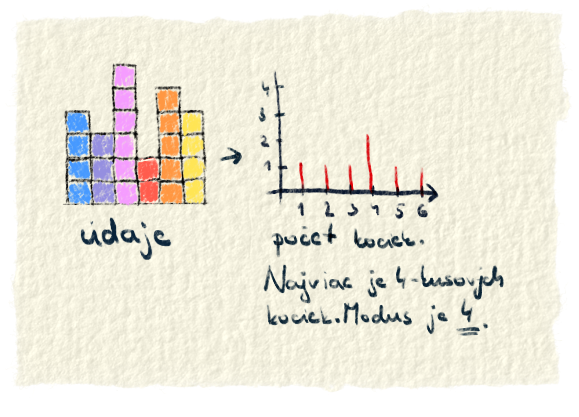 údaje
4
3
2
1
1 2 3 4 5 6
počet kociek.
Najviac je 4-kusových
kociek. Modus je 4.